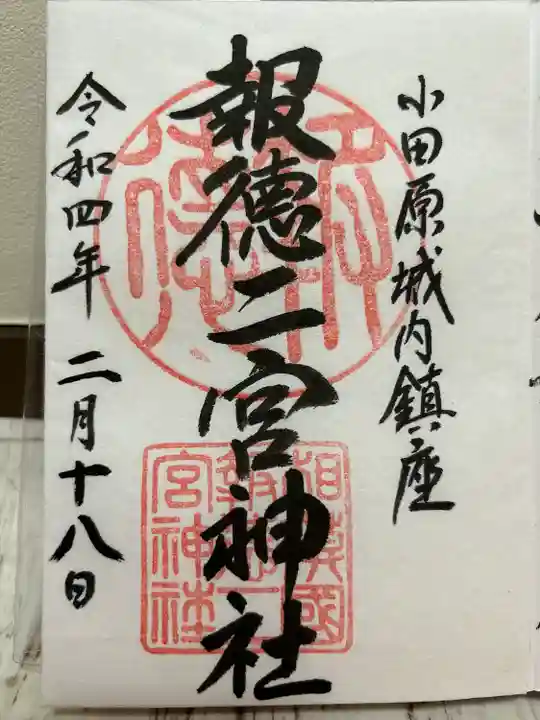 小田原城内鎮座
報徳二宮神社
令和四年二月十八日
報徳
相模國
報徳二
宮神社